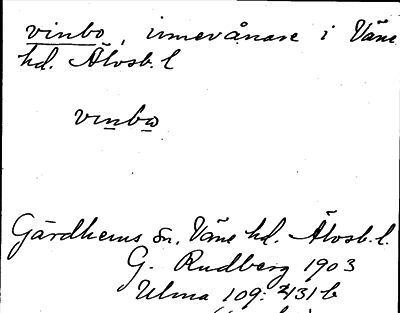 vinbo, innevånare i Väne
hd. Älvsb. l
vinbω
Gärdhems sn, Väne hd. Älvsb. l.
G. Rudberg 1903
Ulma 109: 431 b